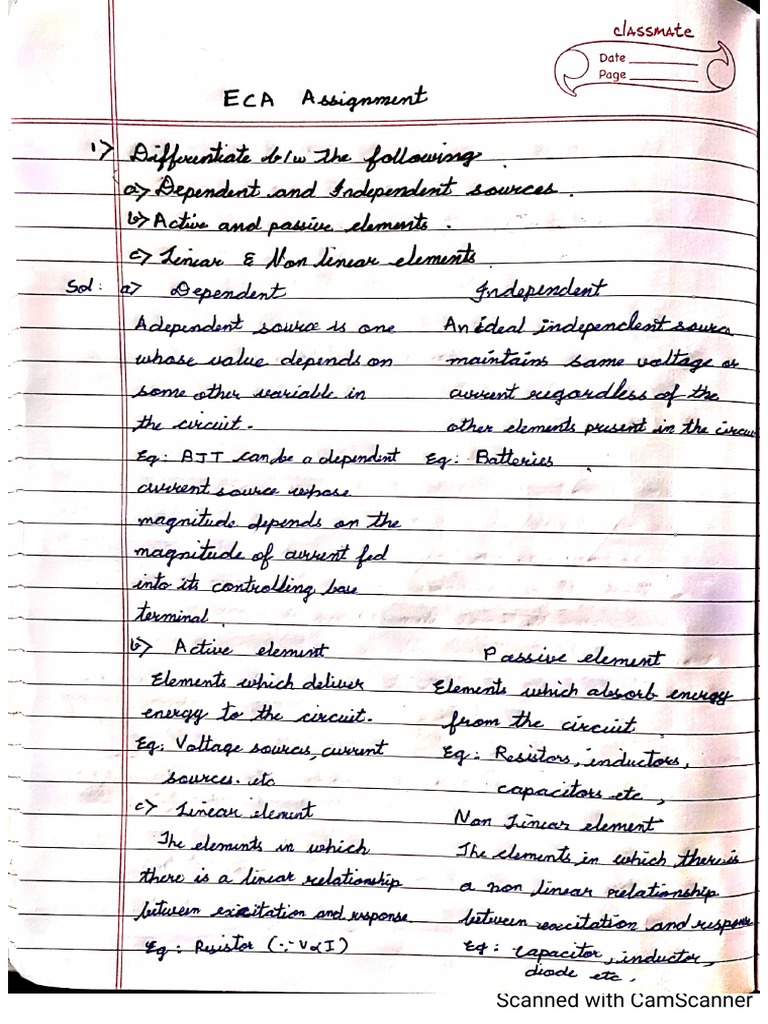 classmate
Date
Page
ECA Assignment
1> Differentiate b/w the following
a> Dependent and Independent sources.
b> Active and passive elements.
c> Linear & Non linear elements
Sol: a> Dependent
A dependent source is one
whose value depends on
some other variable in
the circuit.
Eg: BJT can be a dependent
current source whose
magnitude depends on the
magnitude of current fed
into its controlling base
terminal.
Independent
An ideal independent source
maintains same voltage or
current regardless of the
other elements present in the circui
Eg: Batteries
b> Active element
Elements which deliver
energy to the circuit.
Eg: Voltage sources, current
sources. etc
Passive element
Elements which absorb energy
from the circuit
Eg: Resistors, inductors,
capacitors etc,
c> Linear element
The elements in which
there is a linear relationship
between excitation and response
Eg: Resistor (∵ V∝I)
Non Linear element
The elements in which there is
a non linear relationship
between excitation and response
Eg: capacitor, inductor,
diode etc.
Scanned with CamScanner